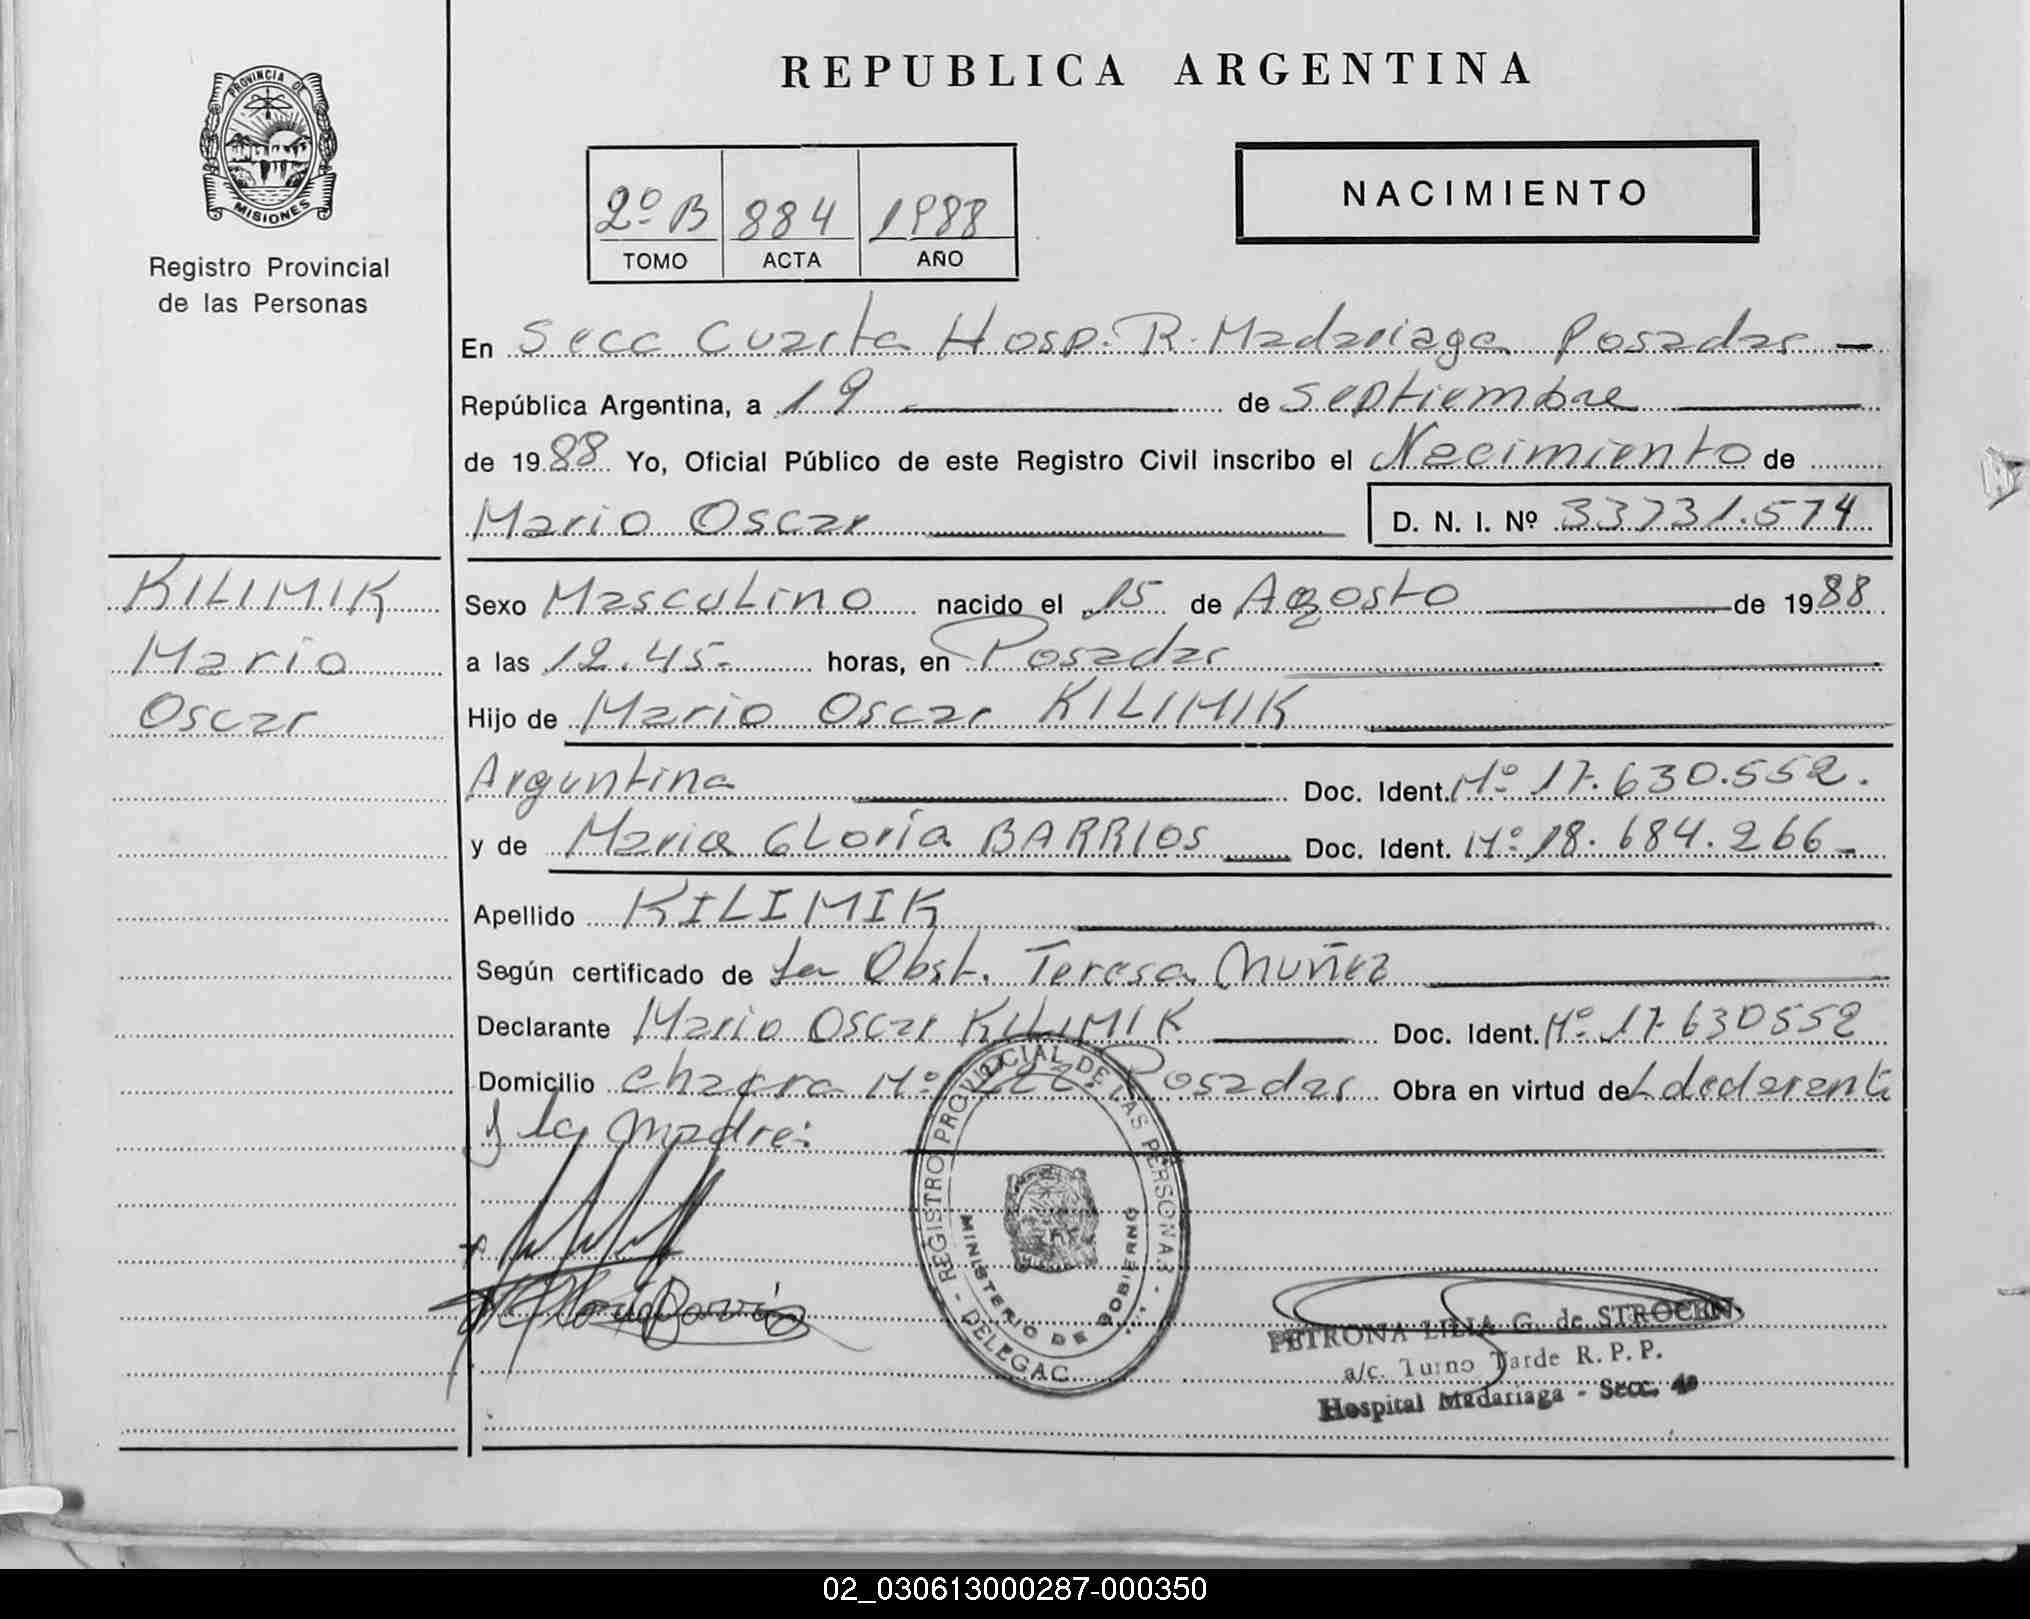 PROVINCIA DE
MISIONES
Registro Provincial
de las Personas
REPUBLICA ARGENTINA
2º B 884 1988
TOMO ACTA AÑO
NACIMIENTO
En Secc Cuarta Hosp. R. Madariaga Posadas —
República Argentina, a 19 de septiembre
de 1988 Yo, Oficial Público de este Registro Civil inscribo el Nacimiento de
Mario Oscar D. N. I. Nº 33731.574
KILIMIK
Mario
Oscar
Sexo Masculino nacido el 15 de Agosto de 1988
a las 12.45- horas, en Posadas
Hijo de Mario Oscar KILIMIK
Argentina Doc. Ident. Nº 17.630.552.
y de Maria GLoria BARRIOS Doc. Ident. Nº 18.684.266-
Apellido KILIMIK
Según certificado de La Obst. Teresa Muñez
Declarante Mario Oscar KILIMIK Doc. Ident. Nº 17.630552
Domicilio chacra Nº Posadas Obra en virtud de
y la madre:
REGISTRO PROVINCIAL DE LAS PERSONAS - DELEGAC.
MINISTERIO DE GOBIERNO
PETRONA LILIA G. de STROCEN
a/c. Turno Tarde R. P. P.
Hospital Madariaga - Secc. 4a
02_030613000287-000350